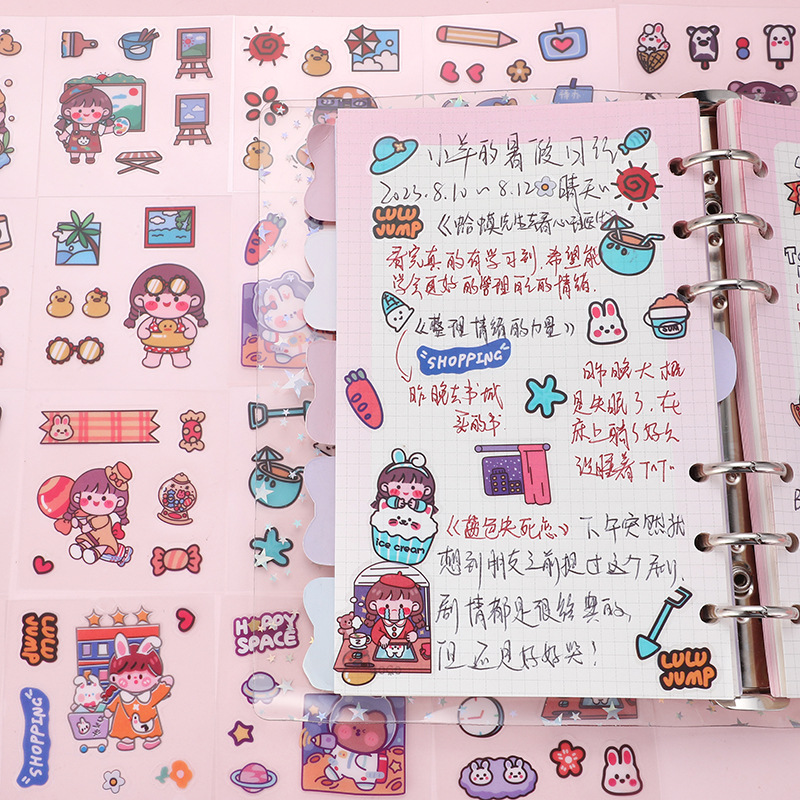 小羊的暑假日记
2023.8.10~8.12 晴天
LULU
JUMP
《蛤蟆先生去看心理医生》
看完真的有学习到,希望能
学会更好的管理自己的情绪.
《整理情绪的力量》
SUN
SHOPPING
昨晚去书城
买的书
昨晚大概
是失眠了,在
床上躺了好久
没睡着TnT
ice cream
《蓝色生死恋》下午突然就
想到朋友之前提过这个剧,
剧情都是很经典的,
但还是好好哭!
LULU
JUMP
LULU
JUMP
SHOPPING
HAPPY
SPACE